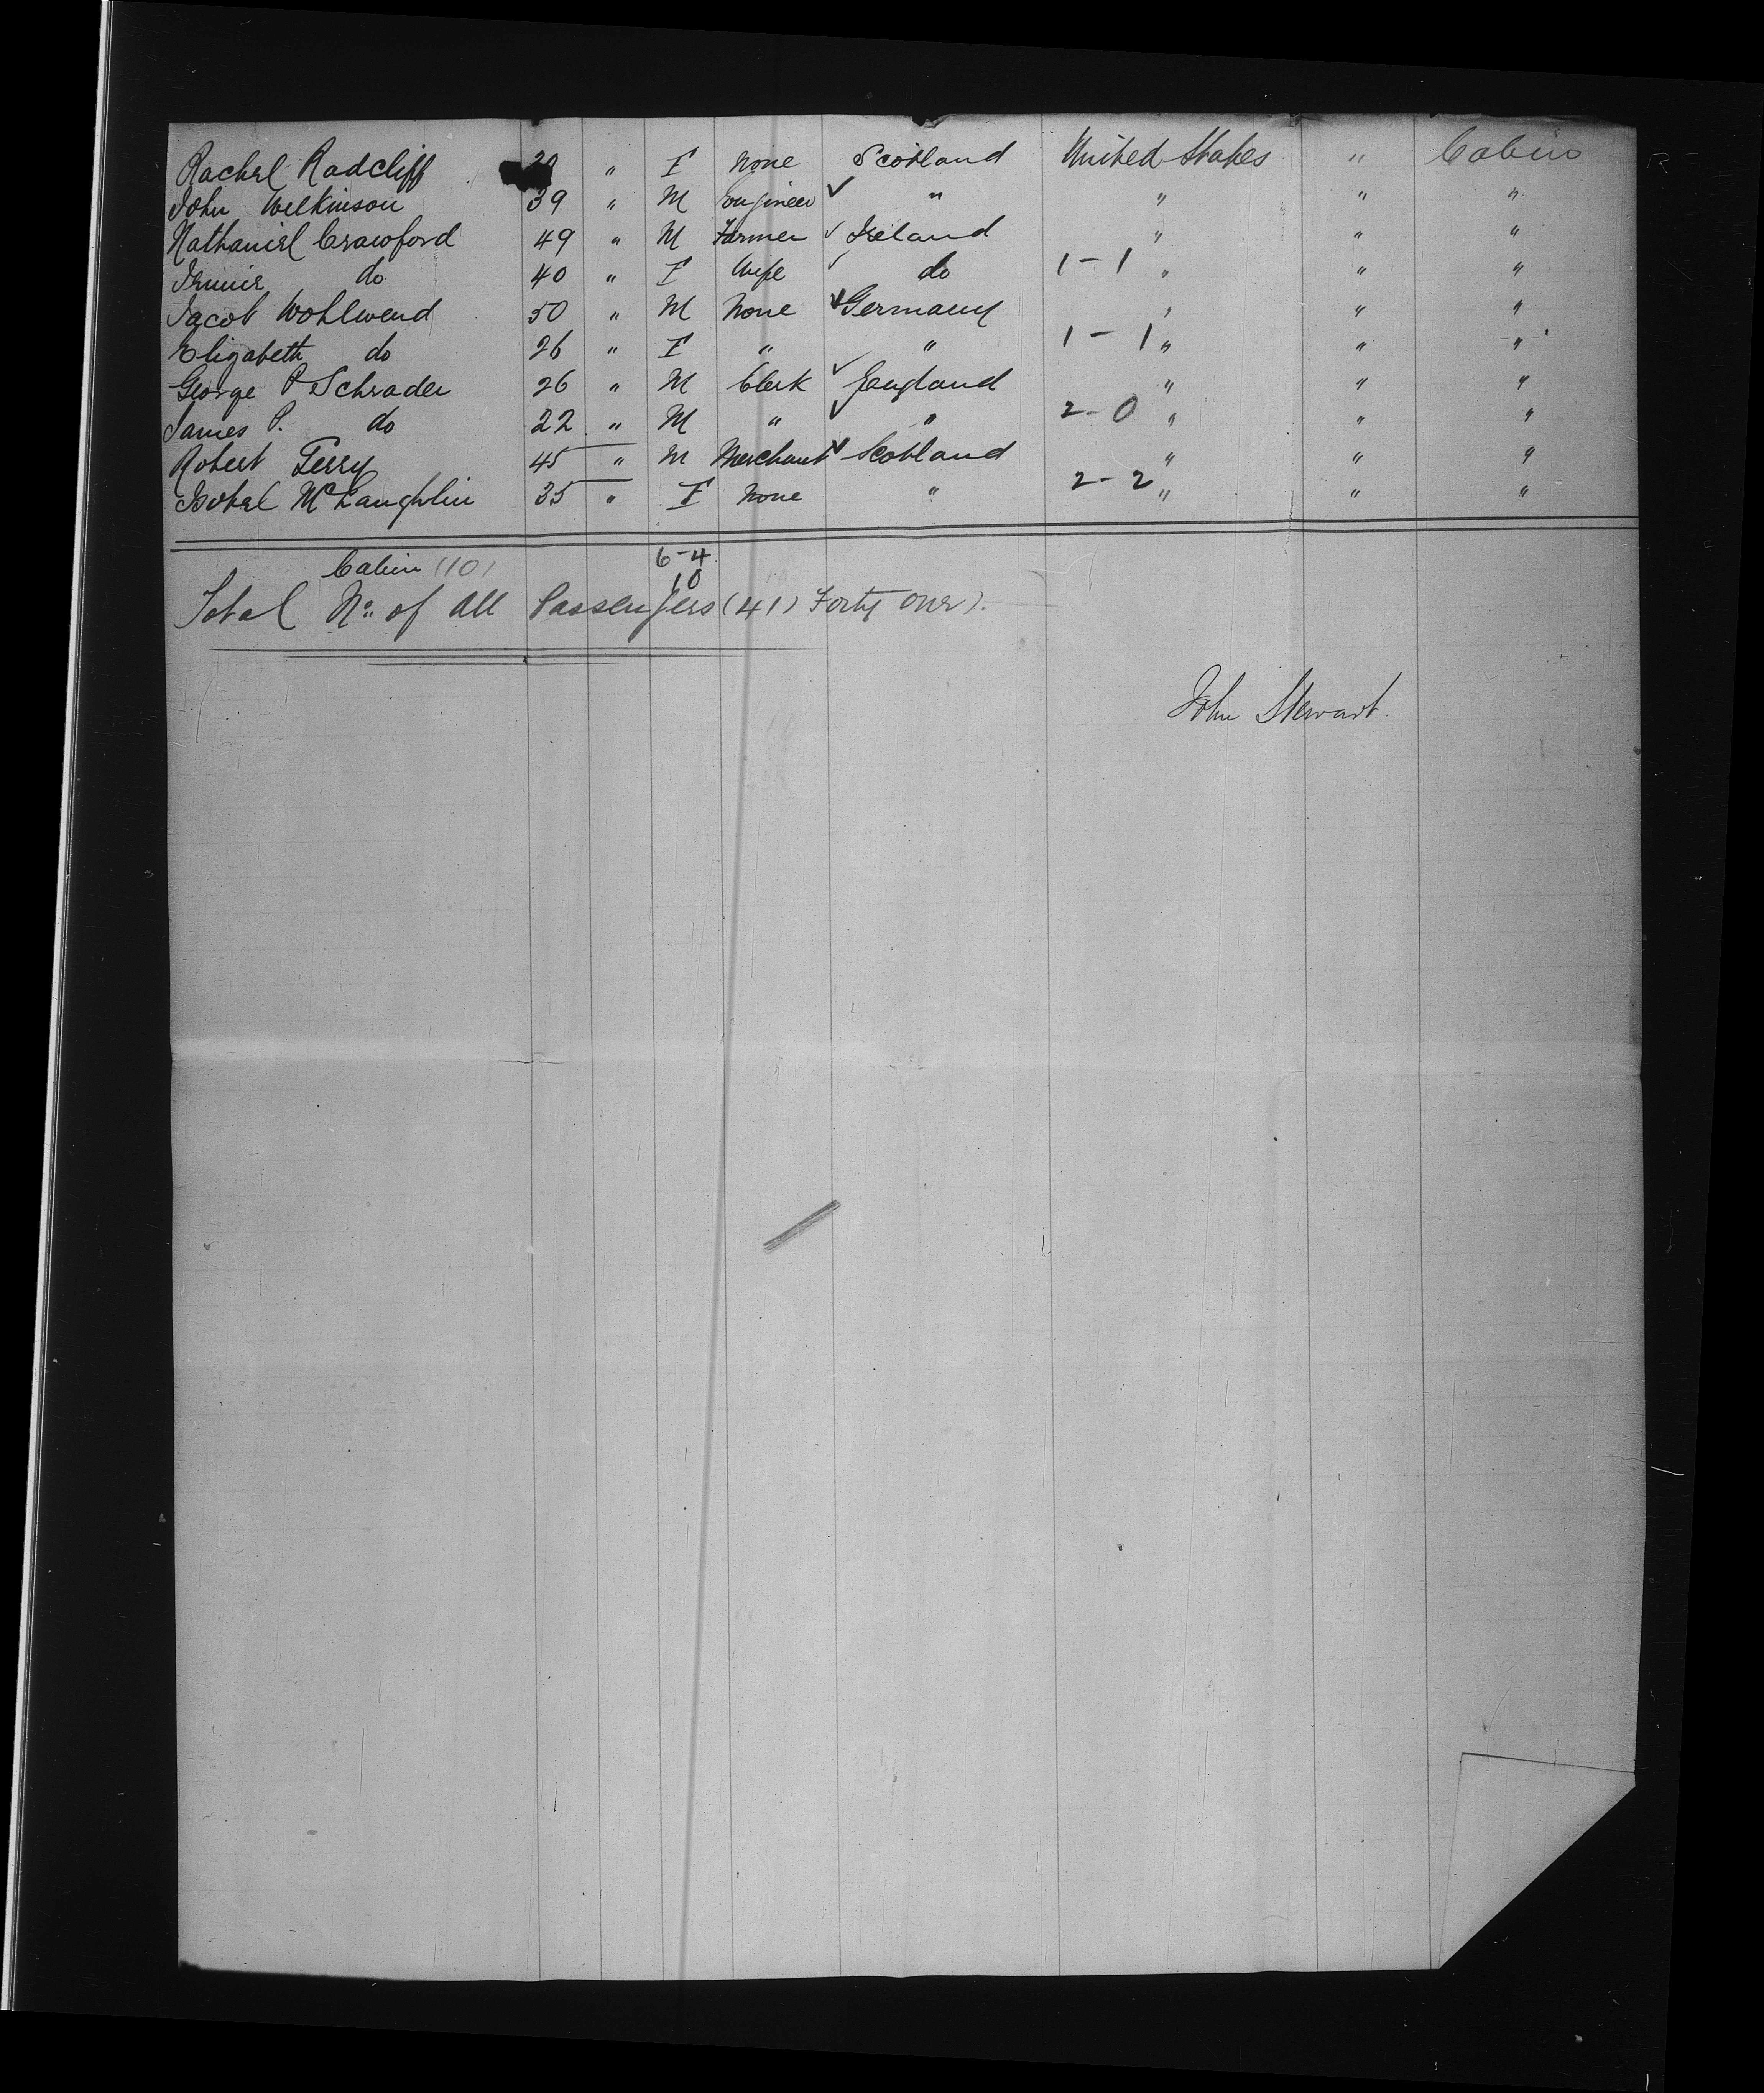 Rachel Radcliff 20 " F None Scotland United States " Cabin
John Wilkinson 39 " M Engineer ✓ " " " "
Nathaniel Crawford 49 " M Farmer ✓ Ireland " " "
do 40 " F Wife ✓ do 1-1 " " "
Jacob Wohlwend 50 " M None ✓ Germany " " "
Elizabeth do 26 " F " " 1-1 " " "
George P Schrader 26 " M Clerk ✓ England " " "
James P. do 22 " M " ✓ " 2-0 " " "
Robert Terry 45 " M Merchant ✓ Scotland " " "
Isobel McLaughlin 35 " F None " 2-2 " " "
Cabin (10) 6-4
10
Total No. of All Passengers (41) Forty one).
John Stewart.